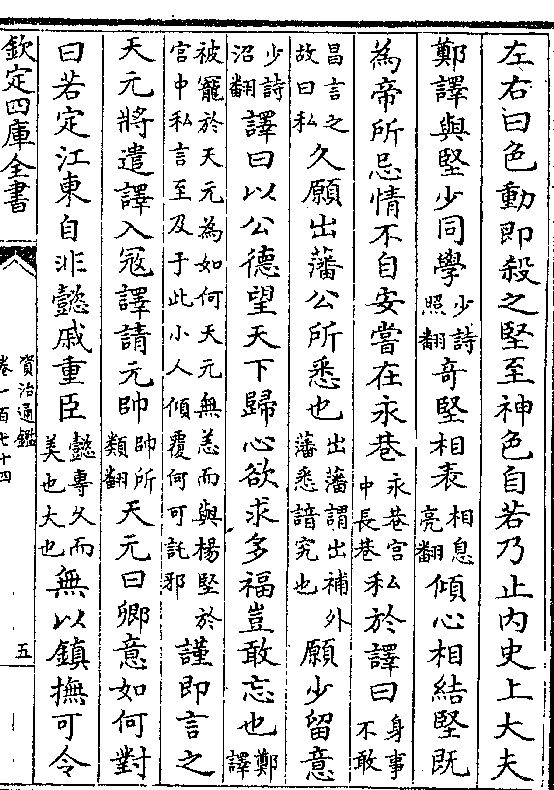 左右曰色動即殺之堅至神色自若乃止内史上大夫
鄭譯與堅少同學少詩照翻奇堅相表相息亮翻傾心相結堅既
為帝所忌情不自安嘗在永巷永巷宫中長巷私於譯曰身事不敢
昌言之故曰私久願出藩公所悉也出藩謂出補外藩悉諳究也願少留意
少詩沼翻譯曰以公德望天下歸心欲求多福豈敢忘也鄭譯
被寵於天元為如何天元無恙而與楊堅於宫中私言至及于此小人傾覆何可託邪謹即言之
天元將遣譯入冦譯請元帥帥所類翻天元曰卿意如何對
曰若定江東自非懿戚重臣懿專久而美也大也無以鎮撫可令
欽定四庫全書
資治通鑑
卷一百七十四
五